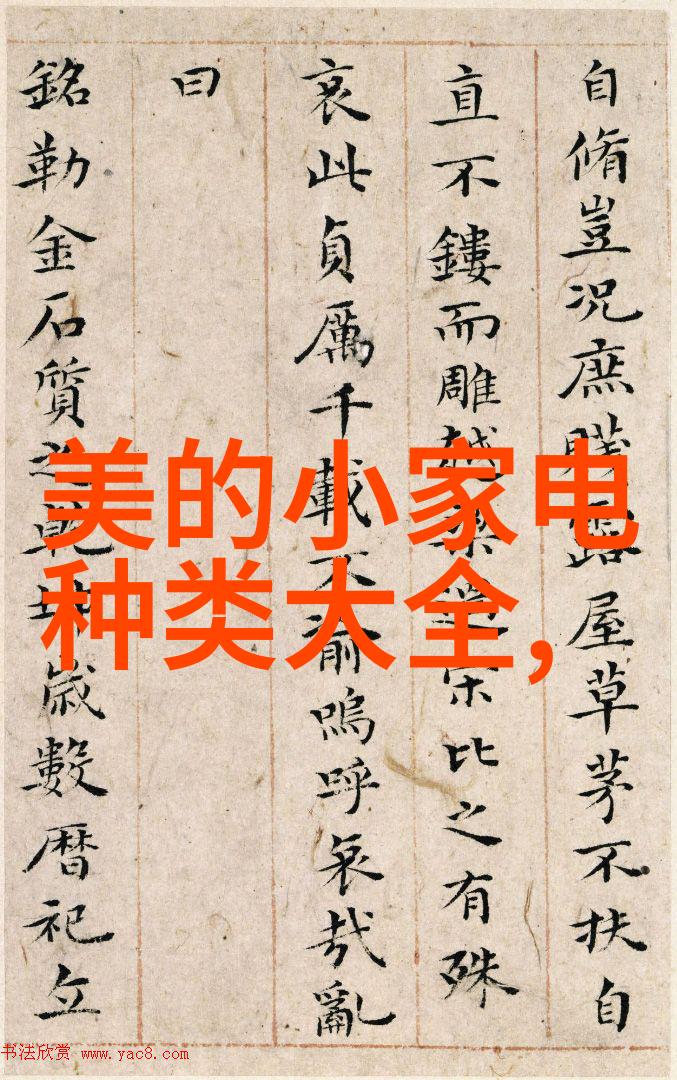 自脩豈況庶賤露屋草茅不扶自
直不鏤而雕越宋比之有殊
哀此貞厲千載不渝嗚呼哀哉亂
曰
銘勒金石質之乾坤歲數曆祀立
美的小家电
种类大全,
书法欣赏 www.yac8.com